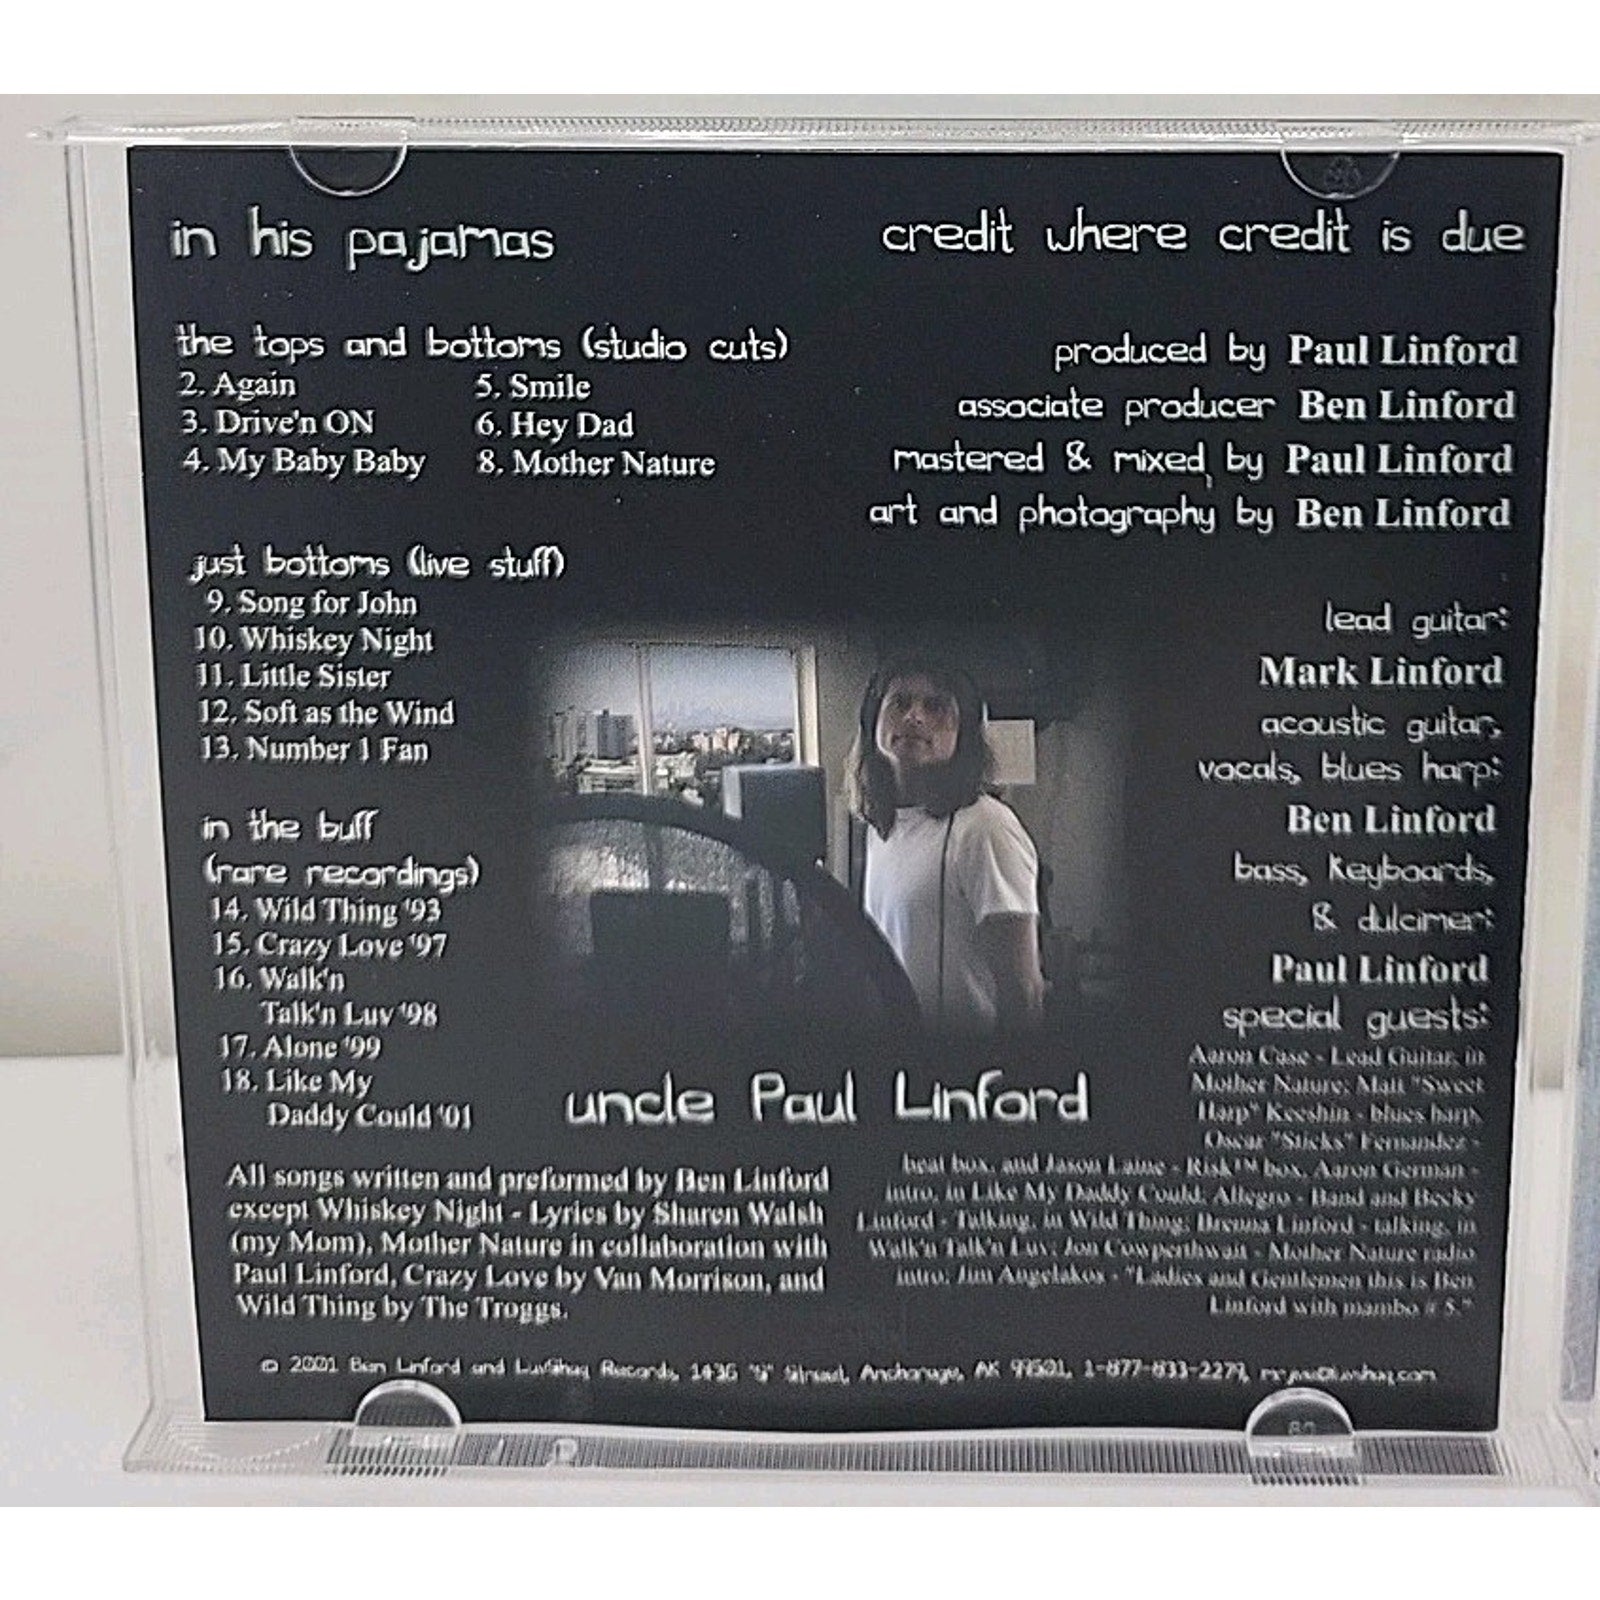 in his pajamas
the tops and bottoms (studio cuts)
2. Again
3. Drive'n ON
4. My Baby Baby
5. Smile
6. Hey Dad
8. Mother Nature
just bottoms (live stuff)
9. Song for John
10. Whiskey Night
11. Little Sister
12. Soft as the Wind
13. Number 1 Fan
in the buff
(rare recordings)
14. Wild Thing '93
15. Crazy Love '97
16. Walk'n
Talk'n Luv '98
17. Alone '99
18. Like My
Daddy Could '01
All songs written and preformed by Ben Linford
except Whiskey Night - Lyrics by Sharen Walsh
(my Mom), Mother Nature in collaboration with
Paul Linford, Crazy Love by Van Morrison, and
Wild Thing by The Troggs.
credit where credit is due
produced by Paul Linford
associate producer Ben Linford
mastered & mixed by Paul Linford
art and photography by Ben Linford
lead guitar:
Mark Linford
acoustic guitar,
vocals, blues harp:
Ben Linford
bass, keyboards,
& dulcimer:
Paul Linford
special guests:
Aaron Case - Lead Guitar, in
Mother Nature; Matt "Sweet
Harp" Keeshin - blues harp,
Oscar "Sticks" Fernandez -
beat box, and Jason Laine - Risk™ box, Aaron German -
intro, in Like My Daddy Could; Allegro - Band and Becky
Linford - Talking, in Wild Thing; Brenna Linford - talking, in
Walk'n Talk'n Luv; Jon Cowperthwait - Mother Nature radio
intro; Jim Angelakos - "Ladies and Gentlemen this is Ben
Linford with mambo # 5."
uncle Paul Linford
© 2001 Ben Linford and LuvShaq Records, 1436 Street, Anchorage, AK 99501, 1-877-833-2279,